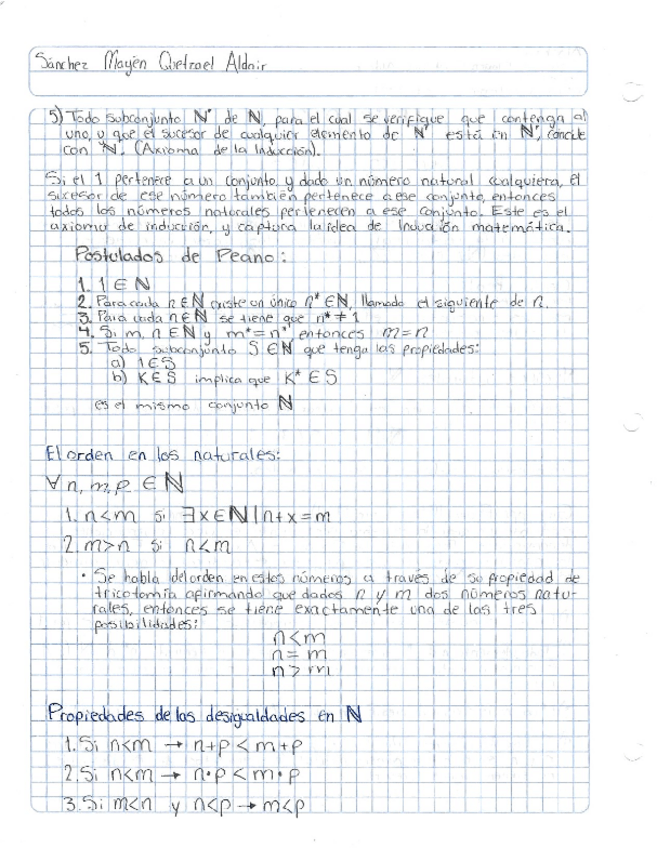 Sánchez Mayén Quetzael Aldair
5) Todo subconjunto N' de N, para el cual se verifique que contenga al
uno, y que el sucesor de cualquier elemento de N' está en N', coincide
con N. (Axioma de la Inducción).
Si el 1 pertenece a un conjunto y dado un número natural cualquiera, el
sucesor de ese número también pertenece a ese conjunto, entonces
todos los números naturales pertenecen a ese conjunto. Este es el
axioma de inducción, y captura la idea de Inducción matemática.
Postulados de Peano:
1. 1 ∈ N
2. Para cada n ∈ N existe un único n* ∈ N, llamado el siguiente de n.
3. Para cada n ∈ N se tiene que n* ≠ 1
4. Si m, n ∈ N y m* = n* entonces m = n
5. Todo subconjunto S ∈ N que tenga las propiedades:
a) 1 ∈ S
b) K ∈ S implica que K* ∈ S
es el mismo conjunto N
El orden en los naturales:
∀ n, m, p ∈ N
1. n < m si ∃ x ∈ N | n + x = m
2. m > n si n < m
• Se habla del orden en estos números a través de su propiedad de
tricotomía afirmando que dados n y m dos números natu-
rales, entonces se tiene exactamente una de las tres
posibilidades:
n < m
n = m
n > m
Propiedades de las desigualdades en N
1. Si n < m → n + p < m + p
2. Si n < m → n • p < m • p
3. Si m < n y n < p → m < p